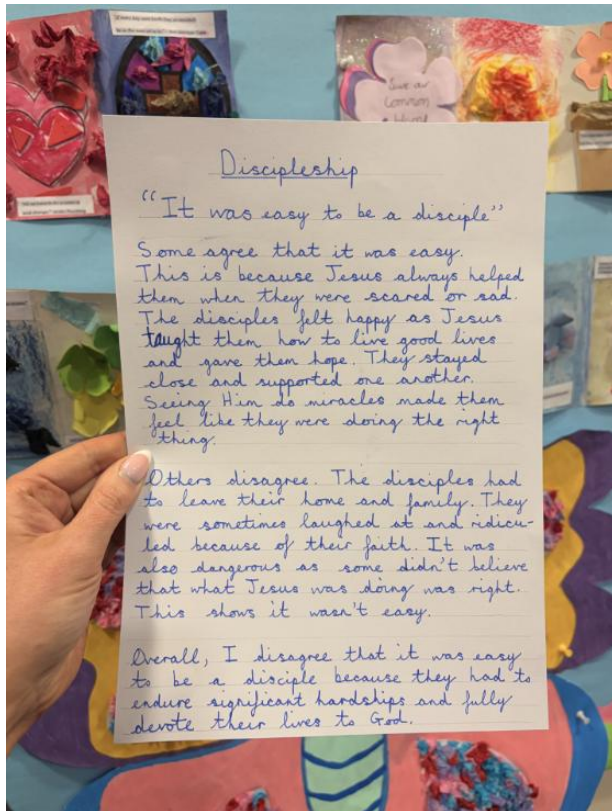 Save our
Common
Home
Discipleship
"It was easy to be a disciple"
Some agree that it was easy.
This is because Jesus always helped
them when they were scared or sad.
The disciples felt happy as Jesus
taught them how to live good lives
and gave them hope. They stayed
close and supported one another.
Seeing Him do miracles made them
feel like they were doing the right
thing.
Others disagree. The disciples had
to leave their home and family. They
were sometimes laughed at and ridicu-
led because of their faith. It was
also dangerous as some didn't believe
that what Jesus was doing was right.
This shows it wasn't easy.
Overall, I disagree that it was easy
to be a disciple because they had to
endure significant hardships and fully
devote their lives to God.